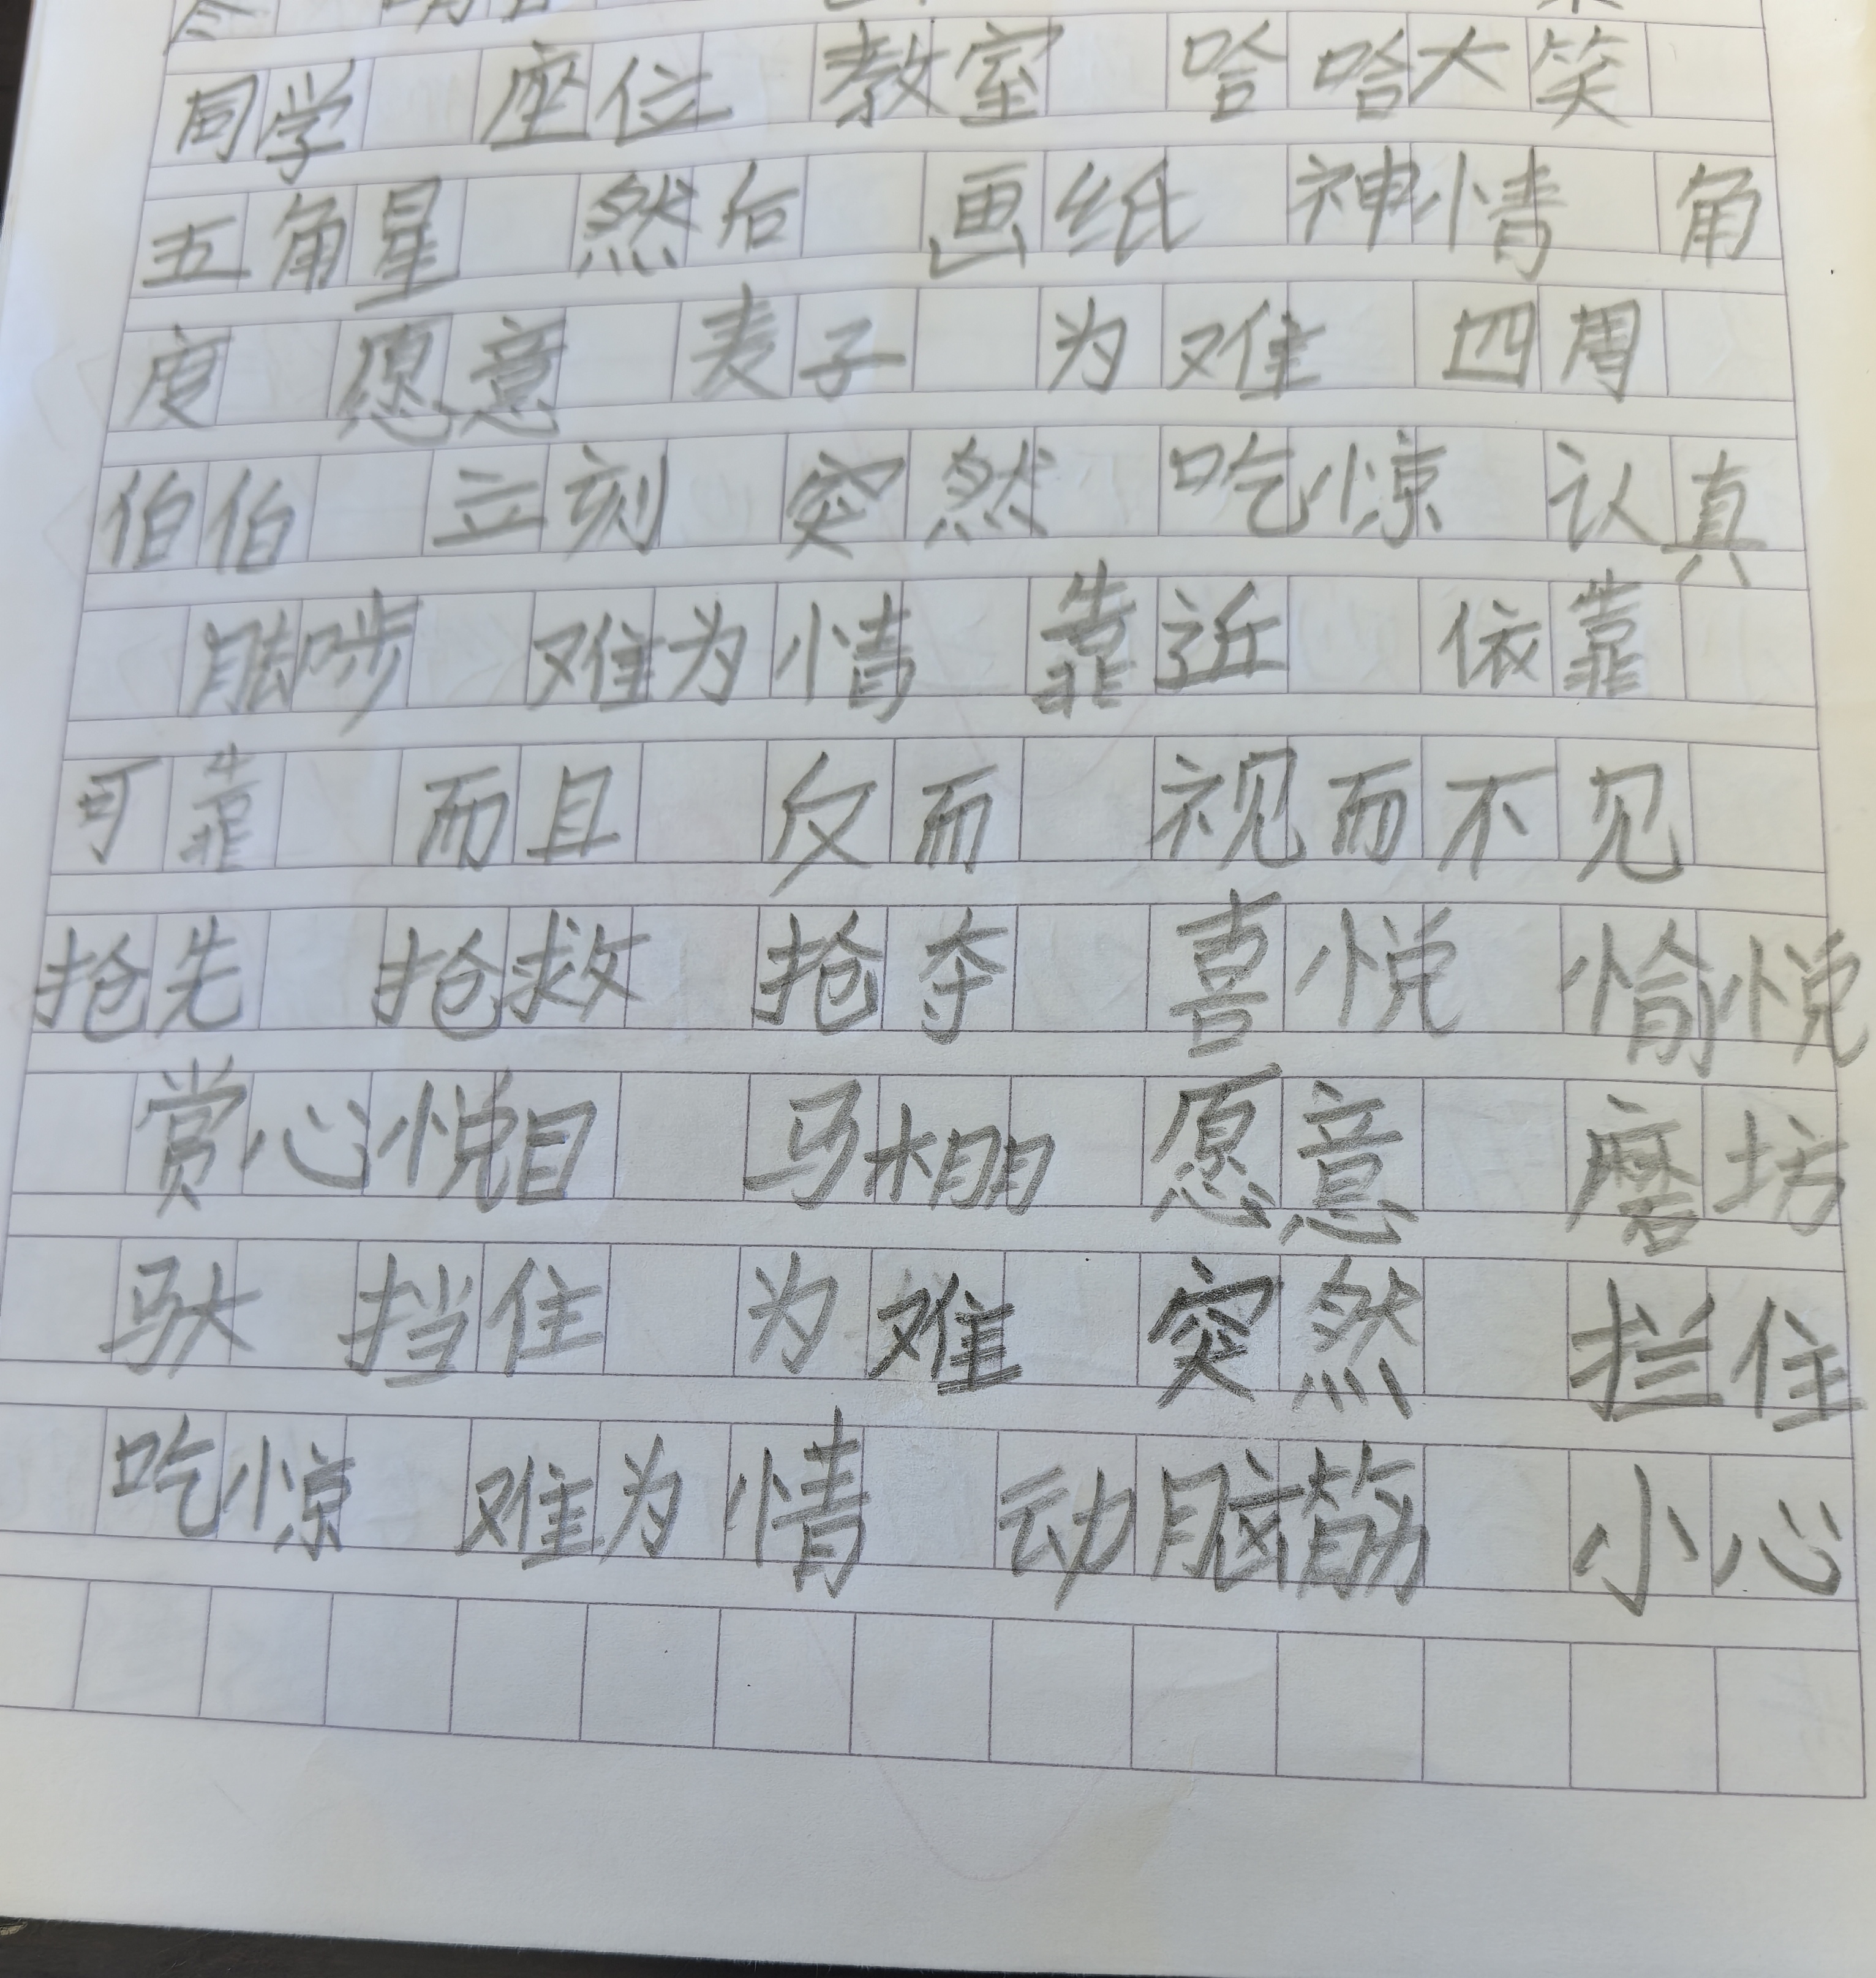 同学 座位 教室 哈哈大笑
五角星 然后 画纸 神情 角
度 愿意 麦子 为难 四周
伯伯 立刻 突然 吃惊 认真
难为情 靠近 依靠
可靠 而且 反而 视而不见
抢先 抢救 抢夺 喜悦 愉悦
赏心悦目 马棚 愿意 磨坊
驮 挡住 为难 突然 拦住
吃惊 难为情 动脑筋 小心